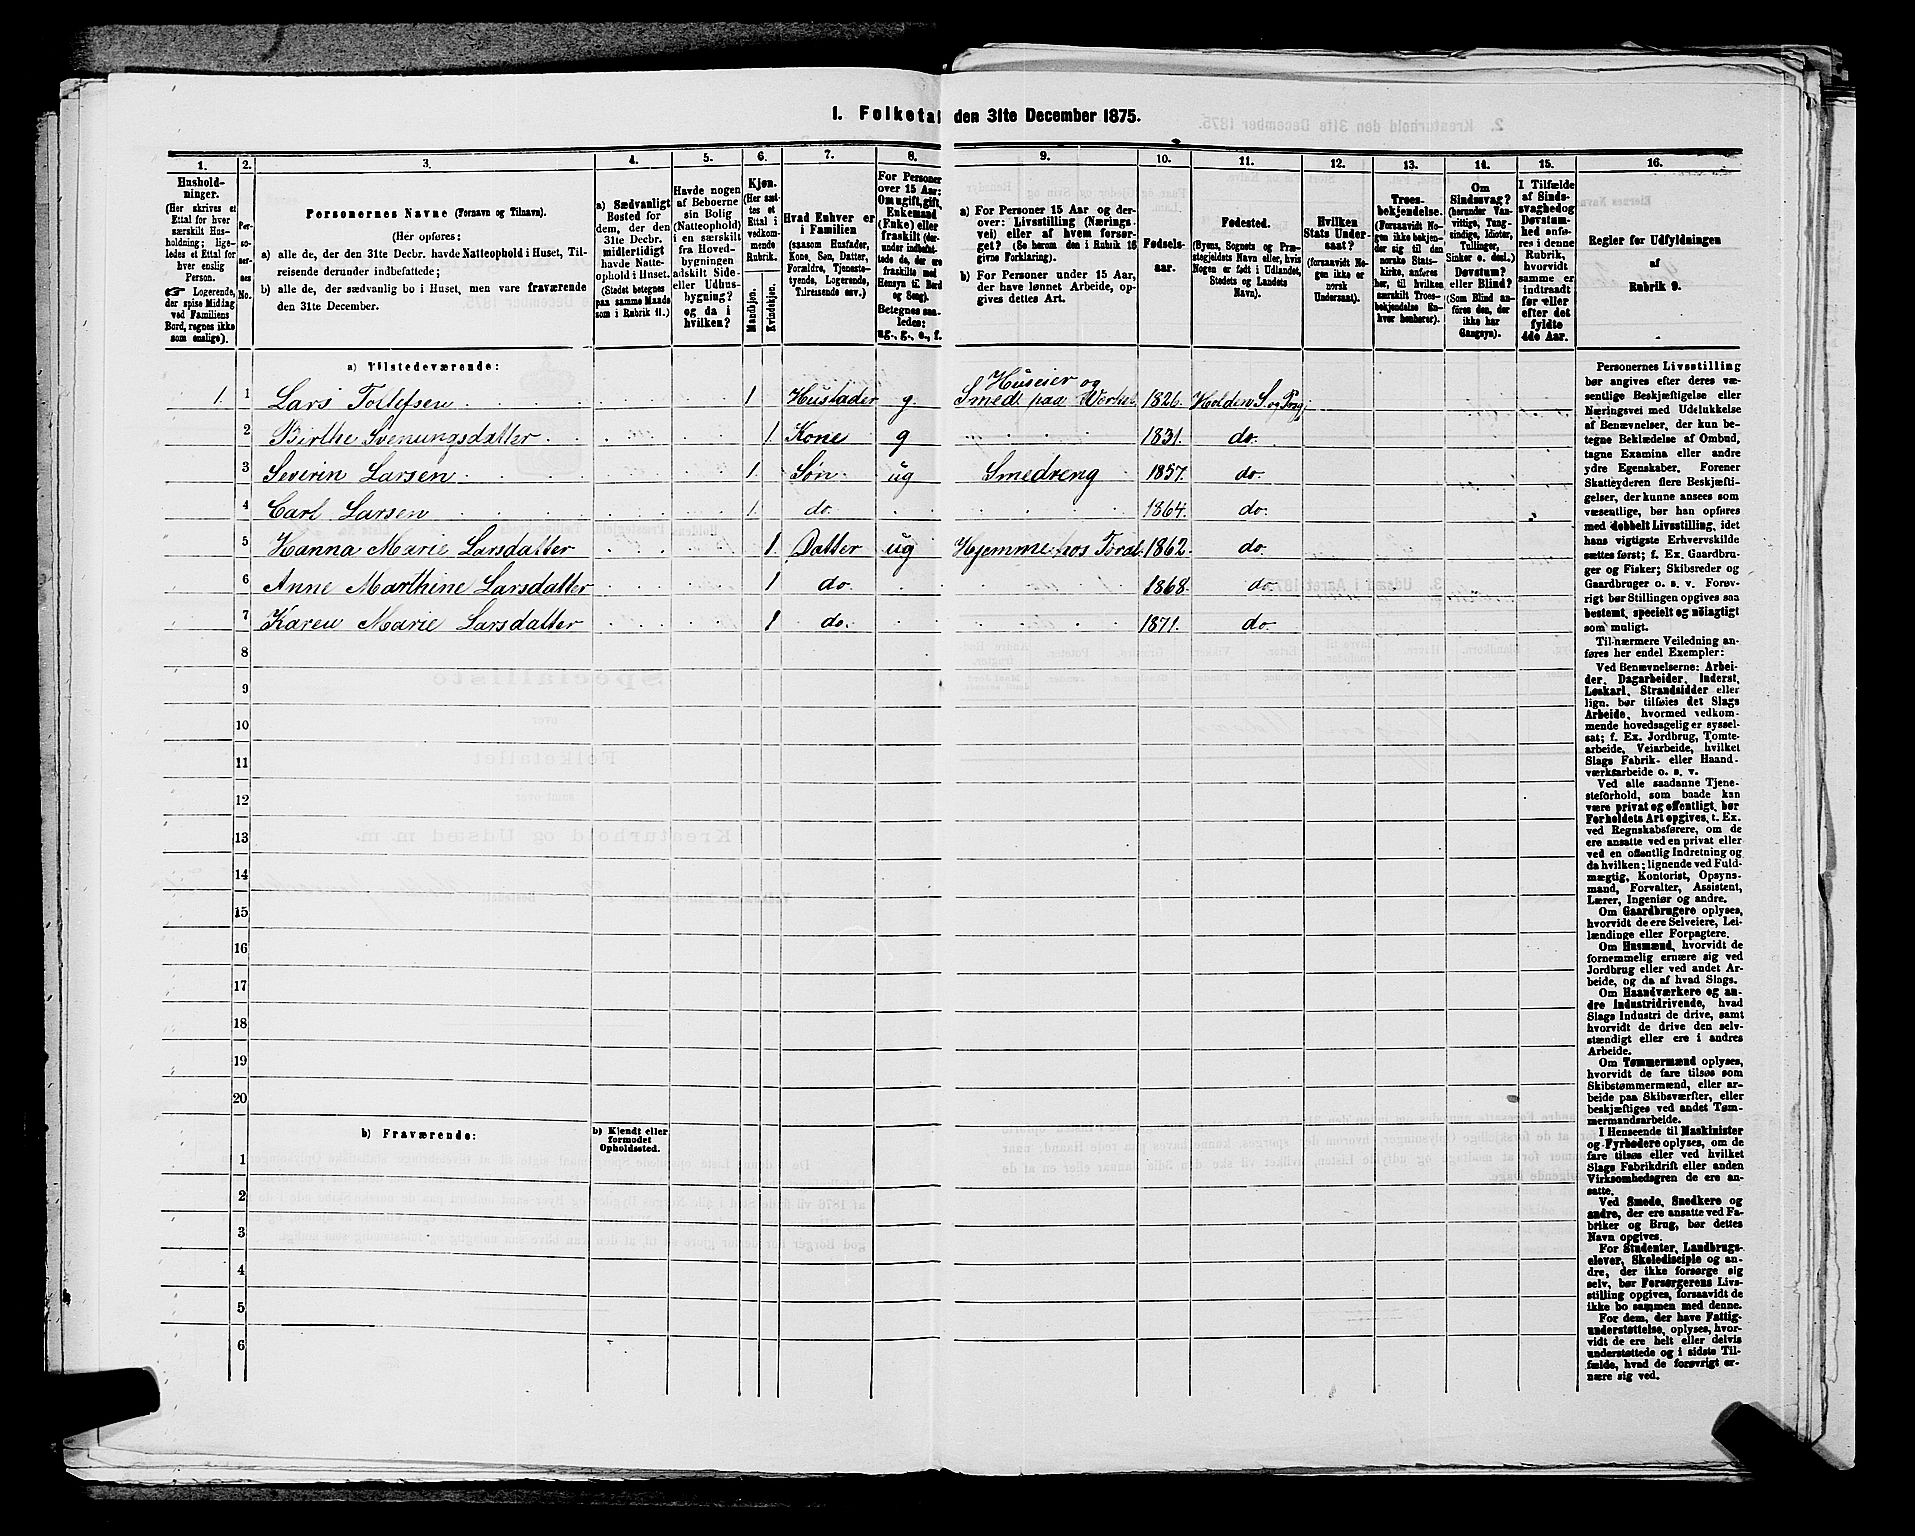 1. Folketal den 31te December 1875.
1. 2. 3. 4. 5. 6. 7. 8. 9. 10. 11. 12. 13. 14. 15. 16.
Hushold-
ninger.
(Her skrives et
Ettal for hver
særskilt Hus-
holdning; lige-
ledes et Ettal for
hver enslig
Person.
☞ Logerende,
der spise Middag
ved Familiens
Bord, regnes ikke
som enslige).
Per-
so-
ner-
nes
No.
Personernes Navne (Fornavn og Tilnavn).
(Her opføres:
a) alle de, der den 31te Decbr. havde Natteophold i Huset, Til-
reisende derunder indbefattede;
b) alle de, der sædvanlig bo i Huset, men vare fraværende
den 31te December.
a) Sædvanligt
Bosted for
dem, der den
31te Decbr.
midlertidigt
havde Natte-
ophold i Huset.
(Stedet betegnes
paa samme Maade
som i Rubrik 11.)
Havde nogen
af Beboerne
sin Bolig
(Natteophold)
i en særskilt
fra Hoved-
bygningen
adskilt Side-
eller Udhus-
bygning?
og da i
hvilken?
Kjøn.
(Her sæt-
tes et
Ettal i
vedkom-
mende
Rubrik.
Mandkjøn.
Kvindekjøn.
Hvad Enhver er
i Familien
(saasom Husfader,
Kone, Søn, Datter,
Forældre, Tjeneste-
tyende, Logerende,
Tilreisende osv.)
For Personer
over 15 Aar:
Om ugift, gift,
Enkemand
(Enke) eller
fraskilt (der-
under indbefat-
tede de, der ere
fraskilte med
Hensyn til Bord
og Seng).
Betegnes saa-
ledes:
ug., g., e., f.
a) For Personer 15 Aar og der-
over: Livsstilling (Nærings-
vei) eller af hvem forsør-
get? (Se herom den i Rubrik 16
givne Forklaring).
b) For Personer under 15 Aar,
der have lønnet Arbeide, op-
gives dettes Art.
Fødsels-
aar.
Fødested.
(Byens, Sognets og Præ-
stegjeldets Navn eller, hvis
Nogen er født i Udlandet,
Stedets og Landets
Navn).
Hvilken
Stats Under-
saat?
(forsaavidt No-
gen ikke er
norsk
Undersaat).
Troes-
bekjendelse.
(Forsaavidt No-
gen ikke bekjen-
der sig til den
norske Stats-
kirke, anføres
her, til hvilken
særskilt Troes-
bekjendelse En-
hver henhører).
Om
Sindssvag?
(herunder Van-
vittige, Tung-
sindige, Idioter,
Tullinger,
Sinker o. desl.)
Døvstum?
eller Blind?
(Som Blind an-
føres den, der
ikke har
Gangsyn).
I Tilfælde
af Sinds-
svaghed og
Døvstum-
hed anfø-
res i denne
Rubrik,
hvorvidt
samme er
indtraadt
før eller
efter det
fyldte
4de Aar.
Regler for Udfyldningen
af
Rubrik 9.
a) Tilstedeværende:
Huseier og
1. 1 Lars Tollefsen 1 Husfader g. Smed paa Verket 1826. Holden S. og Prg.
2 Birthe Svenungsdatter 1 Kone g 1831. do.
3 Severin Larsen 1 Søn ug Smedreng 1857. do.
4 Carl Larsen 1 do. 1864. do.
5 Hanna Marie Larsdatter 1 Datter ug Hjemme hos Foral. 1862. do.
6 Anne Marthine Larsdatter 1 do. 1868. do.
7 Karen Marie Larsdatter 1 do. 1871. do.
8
9
10
11
12
13
14
15
16
17
18
19
20
b) Fraværende:
b) Kjendt eller
formodet
Opholdssted.
1
2
3
4
5
6
Personernes Livsstilling
bør angives efter deres væ-
sentlige Beskjæftigelse eller
Næringsvei med Udelukkelse
af Benævnelser, der kun be-
tegne Beklædelse af Ombud,
tagne Examina eller andre
ydre Egenskaber. Forener
Skatteyderen flere Beskjæfti-
gelser, der kunne ansees som
væsentlige, bør han opføres
med dobbelt Livsstilling, idet
hans vigtigste Erhvervskilde
sættes først; f. Ex. Gaardbru-
ger og Fisker; Skibsreder og
Gaardbruger o. s. v. Forøv-
rigt bør Stillingen opgives saa
bestemt, specielt og nøiagtigt
som muligt.
Til nærmere Veiledning an-
føres her endel Exempler:
Ved Benævnelserne: Arbei-
der, Dagarbeider, Inderst,
Løskarl, Strandsidder eller
lign. bør tilføies det Slags
Arbeide, hvormed vedkom-
mende hovedsagelig er syssel-
sat; f. Ex. Jordbrug, Tomte-
arbeide, Veiarbeide, hvilket
Slags Fabrik- eller Haand-
værksarbeide o. s. v.
Ved alle saadanne Tjene-
steforhold, som baade kan
være privat og offentligt, bør
Forholdets Art opgives, t. Ex.
ved Regnskabsførere, om de
ere ansatte ved en privat eller
ved en offentlig Indretning og
da hvilken; lignende ved Fuld-
mægtig, Kontorist, Opsyns-
mand, Forvalter, Assistent,
Lærer, Ingeniør og andre.
Om Gaardbrugere oplyses,
hvorvidt de ere Selveiere, Lei-
lændinge eller Forpagtere.
Om Husmænd, hvorvidt de
fornemmelig ernære sig ved
Jordbrug eller ved andet Ar-
beide, og da af hvad Slags.
Om Haandværkere og an-
dre Industridrivende, hvad
Slags Industri de drive, samt
hvorvidt de drive den selv-
stændigt eller ere i andres
Arbeide.
Om Tømmermænd oplyses,
hvorvidt de fare tilsøs som
Skibstømmermænd, eller ar-
beide paa Skibsværfter, eller
beskjæftiges ved andet Tøm-
mermandsarbeide.
I Henseende til Maskinister
og Fyrbødere oplyses, om de
fare tilsøs eller ved hvilket
Slags Fabrikdrift eller anden
Virksomhedsgren de ere an-
satte.
Ved Smede, Snedkere og
andre, der ere ansatte ved Fa-
briker og Brug, bør dettes
Navn opgives.
For Studenter, Landbrugs-
elever, Skoledisciple og an-
dre, der ikke forsørge sig
selv, bør Forsørgerens Livs-
stilling opgives, forsaavidt de
ikke bo sammen med denne.
For dem, der have Fattig-
understøttelse, oplyses, hvor-
vidt de ere helt eller delvis
understøttede og i sidste Til-
fælde, hvad de forøvrigt er-
nære sig ved.